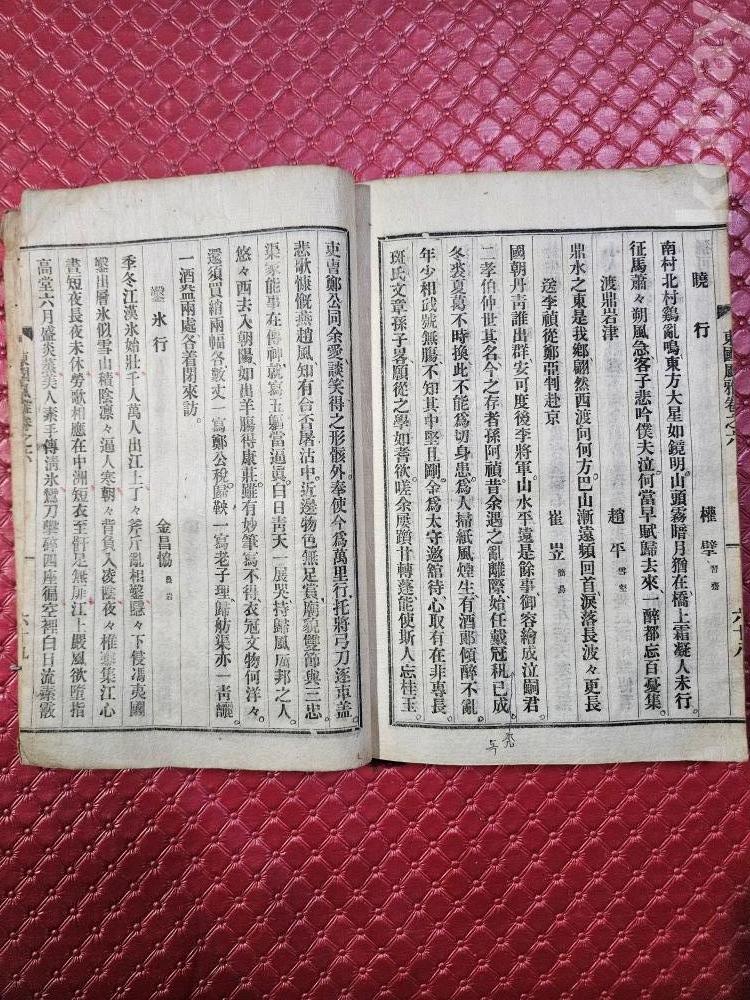 東國風雅卷之六
六十八
曉行
權擘 習齋
南村北村鷄亂鳴。東方大星如鏡明。山頭霧暗月猶在。橋上霜凝人未行。
征馬蕭々朔風急。客子悲吟僕夫泣。何當早賦歸去來。一醉都忘百憂集。
渡鼎岩津
趙平 雪壑
鼎水之東是我鄕。翩然西渡向何方。巴山漸遠頻回首。淚落長波々更長。
送李禎從鄭亞判赴京
崔岦 簡易
國朝丹靑誰出群。安可度後李將軍。山水平遠是餘事。御容繪成泣嗣君。
二孝伯仲世其名。今之存者孫阿禎。昔余遇之亂離際。始任戴冠秖已成。
冬裘夏葛不時換。此不能爲切身患。爲人掃紙風煙生。有酒郞傾醉不亂。
年少相武號無腸。不知其中堅且剛。金爲太守邀舘待。心取有在非專長。
斑氏文章孫子畧。願從之學如者欲。嗟余屢躓甘轉蓬。能使斯人忘桂玉。
吏曹鄭公同余愛。談笑得之形骸外。奉使今爲萬里行。托將弓刀逐車盖。
悲歌慷慨燕趙風。知有合沓屠沽中。近邊物色無足賞。廟貌雙節與三忠。
渠家能事在傳神。就寫五軀當逼眞。白日靑天一展哭。持歸風厲邦之人。
悠々西去入朝陽。如出羊腸得康莊。雖有妙筆寫不得。衣冠文物何洋々。
還須買綃兩幅。各數丈一寫鄭公稅鞅。一寫老子理歸舫。渠亦一靑驢
一酒盆。兩處各着閑來訪。
鑿氷行
金昌協 農岩
季冬江漢氷始壯。千人萬人出江上。丁々斧斤亂相鑿。隱々下侵馮夷國。
鑿出層氷似雪山。積陰凜々逼人寒。朝々背負入凌陰。夜々椎鑿集江心。
晝短夜長夜未休。勞歌相應在中洲。短衣至骭足無扉。江上嚴風欲墮指。
高堂六月盛炎蒸。美人素手傳淸氷。鸞刀擊碎四座徧。空裡白日流素霰
六十九